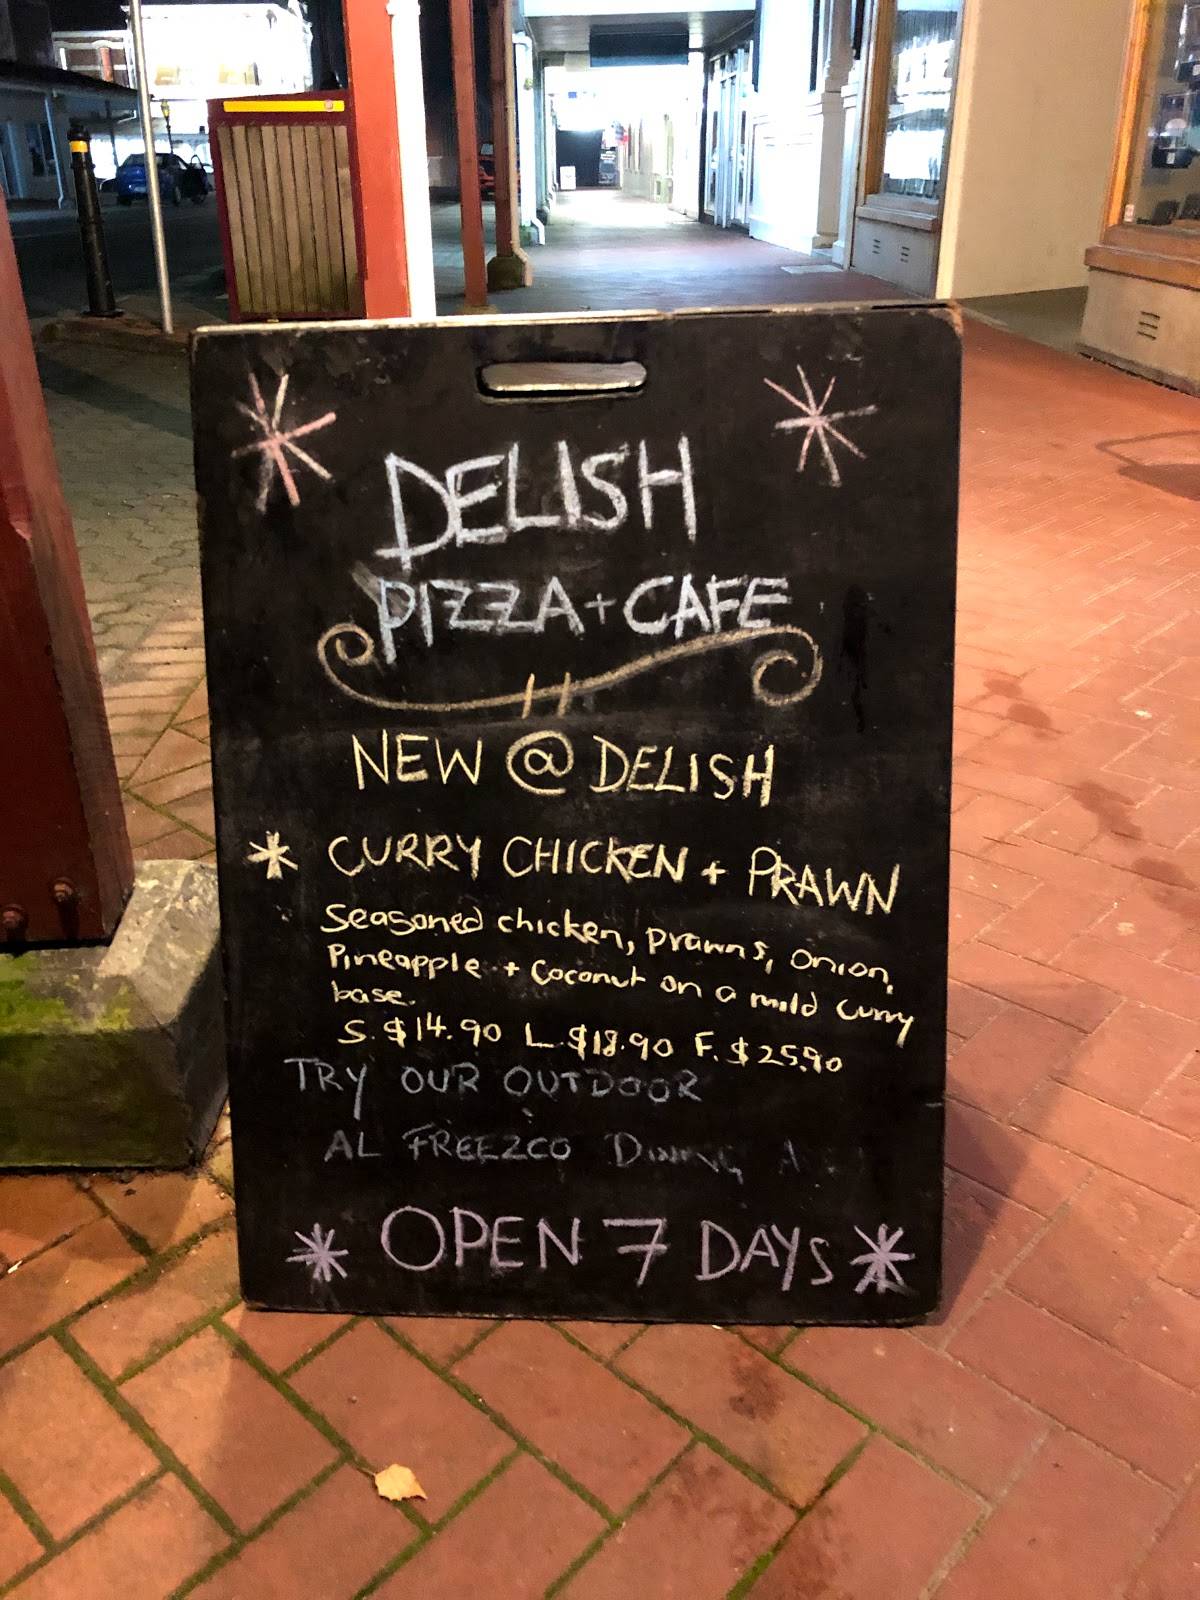 DELISH
PIZZA + CAFE
NEW @ DELISH
* CURRY CHICKEN + PRAWN
Seasoned chicken, prawns, onion,
Pineapple + Coconut on a mild curry
base.
S. $14.90 L. $18.90 F. $25.90
TRY OUR OUTDOOR
AL FREEZCO DINING
* OPEN 7 DAYS *